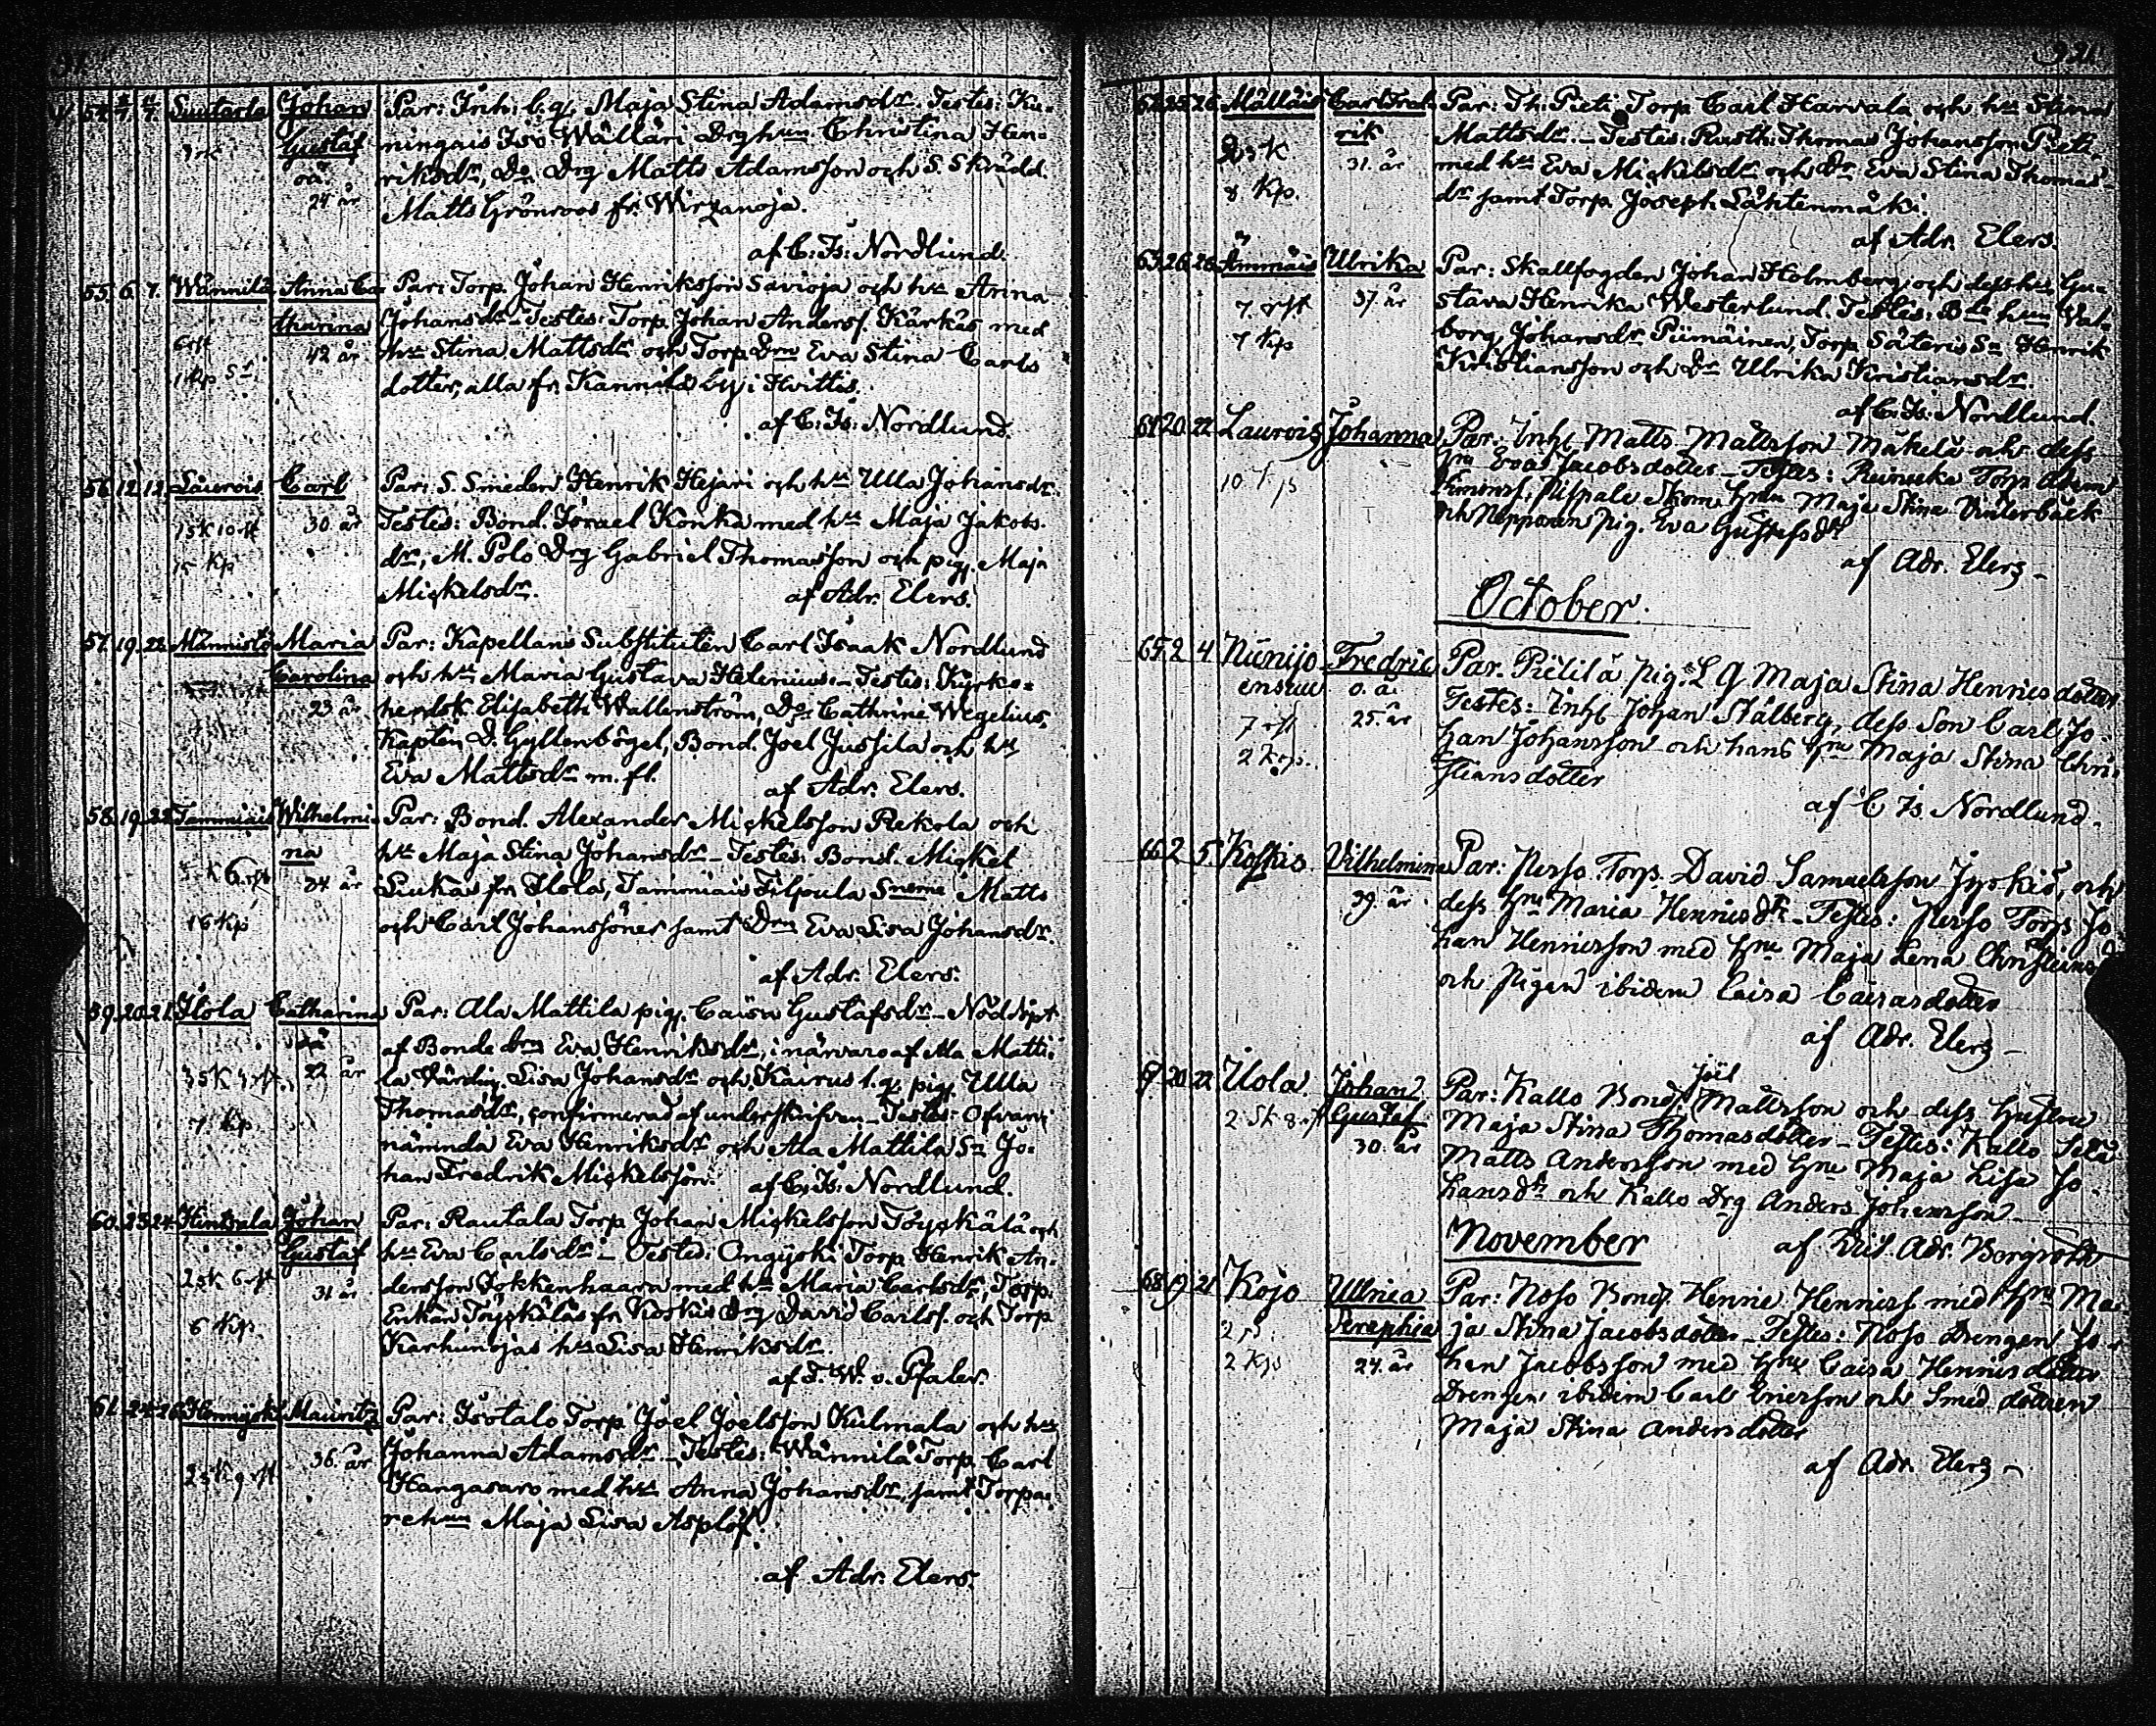 54. Suutarla Johan Par: Inh: l. q. Maja Stina Adamsdr. Testis: Ku-
Gustaf ningais Iso Wälläri Drghun Christina Hen-
oä riksdr, Do Drg Matts Adamsson och S. Skrädd.
24 år Matts Grönroos fr.
af C. Is: Nordlund.
55. 6. 7. Wännilä Anna Ca- Par: Torp. Johan Henriksson Savioja och hu Anna
tharina Johansdr - Testes: Torp. Johan Anderss. Kärkäs med
42 år hu Stina Mattsdr och Torp Drn Eva Stina Carls
dotter, alla fr. Kannila by i Hvittis.
af C: Is: Nordlund.
56. 12. 12. Laurois Carl Par: S. Smeden Henrik Hejari och hu Ulla Johansdr.
15 K 10 rft 30 år Testes: Bond. Israel Konka med hu Maja Jakobs-
15 Kp dr, M. Polo Drg Gabriel Thomasson och pig. Maja
Mickelsdr. af Adr. Elers.
57. 19. 22. Männistö Maria Par: Kapellans Substituten Carl Isaak Nordlund
Carolina och hu Maria Gustava Helenius. - Testes: Kyrko-
23 år herdsk. Elisabeth Wallenström, Do Cathrine Wegelius,
Kapten D. Gyllenbögel, Bond. Joel Jussila och hu
Eva Mattsdr m. fl. af Adr. Elers.
58. 19. 22. Tammiais Wilhelmi- Par: Bond. Alexander Mickelsson Rekola och
na hu Maja Stina Johansdr - Testes: Bond. Mickel
34 år Liuka fr. Ilola, Tammiais Filpula Snerne Matts
16 Kp och Carl Johanssöner samt Drn Eva Lisa Johansdr.
af Adr. Elers.
59. 20. 21. Ilola Catharina Par: Ala Mattila pig. Caisa Gustafsdr - Nöddöpt
oä af Bonde drn Eva Henriksdr, i närvaro af Ala Matti-
22 år la Värdin. Lisa Johansdr och Kairus l. q. pig. Ulla
7 Kp Thomasdr, confirmerad af underskrifven - Testes: Ofvan-
nämnda Eva Henriksdr och Ala Mattila Sn Jo-
han Fredrik Mickelsson. af C: Is: Nordlund.
60. 23. 24. Hintsala Johan Par: Rautala Torp Johan Mickelsson Töyskälä och
Gustaf hu Eva Carlsdr - Testes: Torp. Henrik An-
2 sk 6 rft 31 år dersson med hu Maria Carlsdr, Torp.
6 Kp. Erkan Töyskäläs fr. Koskis Drg David Carlss. och Torp
Karhunojas hu Lisa Henriksdr.
af F. W. v. Pfaler.
61. 24. 26. Hennijoki Mauritz Par: Isotalo Torp Joel Joelsson Kulmala och hu
36. år Johanna Adamsdr. - Testes: Wännilä Torp Carl
2 sk 9 rft Kangasaro med hu Anna Johansdr, samt Torpa-
rehun Maja Lisa Asplöf.
af Adr. Elers.
62. 25. 26. Mälläis Carl Fred- Par: Th: Pieti Torp Carl Harvala och hu Stina
rik Mattsdr. - Testes: Rusth: Thomas Johansson Pieti
31. år med hu Eva Mickelsdr och Dr Eva Stina Thomas-
8 Kp. dr samt Torp. Joseph Lähtenmäki.
af Adr. Elers.
63. 26. 26. Ämmäis Ulrika Par: Skallfogden Johan Holmberg och dess hu Gu-
7. rft 37. år stava Henrika Westerlund. Testes: Bde hun Val-
7 Kp borg Johansdr Piimäinen, Torp Säteris Sn Henrik
Kristiansson och Dr Ulrika Kristiansdr.
af C. Is. Nordlund.
64. 20. 22 Laurois Johanna Par: Inh. Matts Mattsson Mäkelä och dess
10 Kp hu Eva Jacobsdotter - Testes: Torp Adam
Skom. hu Maja Stina Vinterbäck
och pig. Eva Gustafsdr
af Adr. Elers -
October.
65. 2 4 Nunijo Fredric Par. Pietilä pig. L Q Maja Stina Henricsdotter
o. ä. Testes: Inh. Johan Stålberg, dess Son Carl Jo-
7 rft 25. år han Johansson och hans hu Maja Stina Chri-
2 Kp. stiansdotter
af C Is Nordlund.
66. 2 5 Koskis Vilhelmina Par: Torp. David Samuelsson och
39. år dess hu Maria Henricsdr - Testes: Torp Jo-
han Henricsson med hu Maja Lena
och Pigan ibidem Caisa
af Adr. Elers -
67 20 22 Ilola Johan Par: Kallo Bond. Joël Mattsson och dess hustru
Gustaf Maja Stina Thomasdotter - Testes: Kallo
30. år Matts Andersson med hu Maja Lisa Jo-
hansdr och Kallo Drg Anders Johansson
November af Adr. Borgroth
68. 19 21 Kojo Ullrica Par: Bond. Henric Henricss. med hu Ma-
Serephia ja Stina Jacobsdotter - Testes: Drengen Jo-
2 Kp 24. år han Jacobsson med hu Caisa Henricsdotter
Drengen ibidem Carl Ericsson och Smed dottren
Maja Stina Andersdotter
af Adr. Elers -